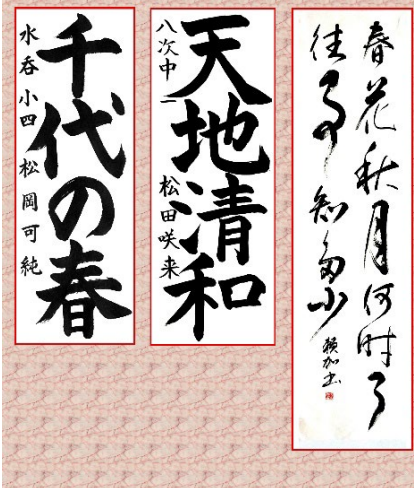 春花秋月何时了
往事知多少
頼加书
天地清和
八次中一 松田咲来
千代の春
水呑小四 松岡可純